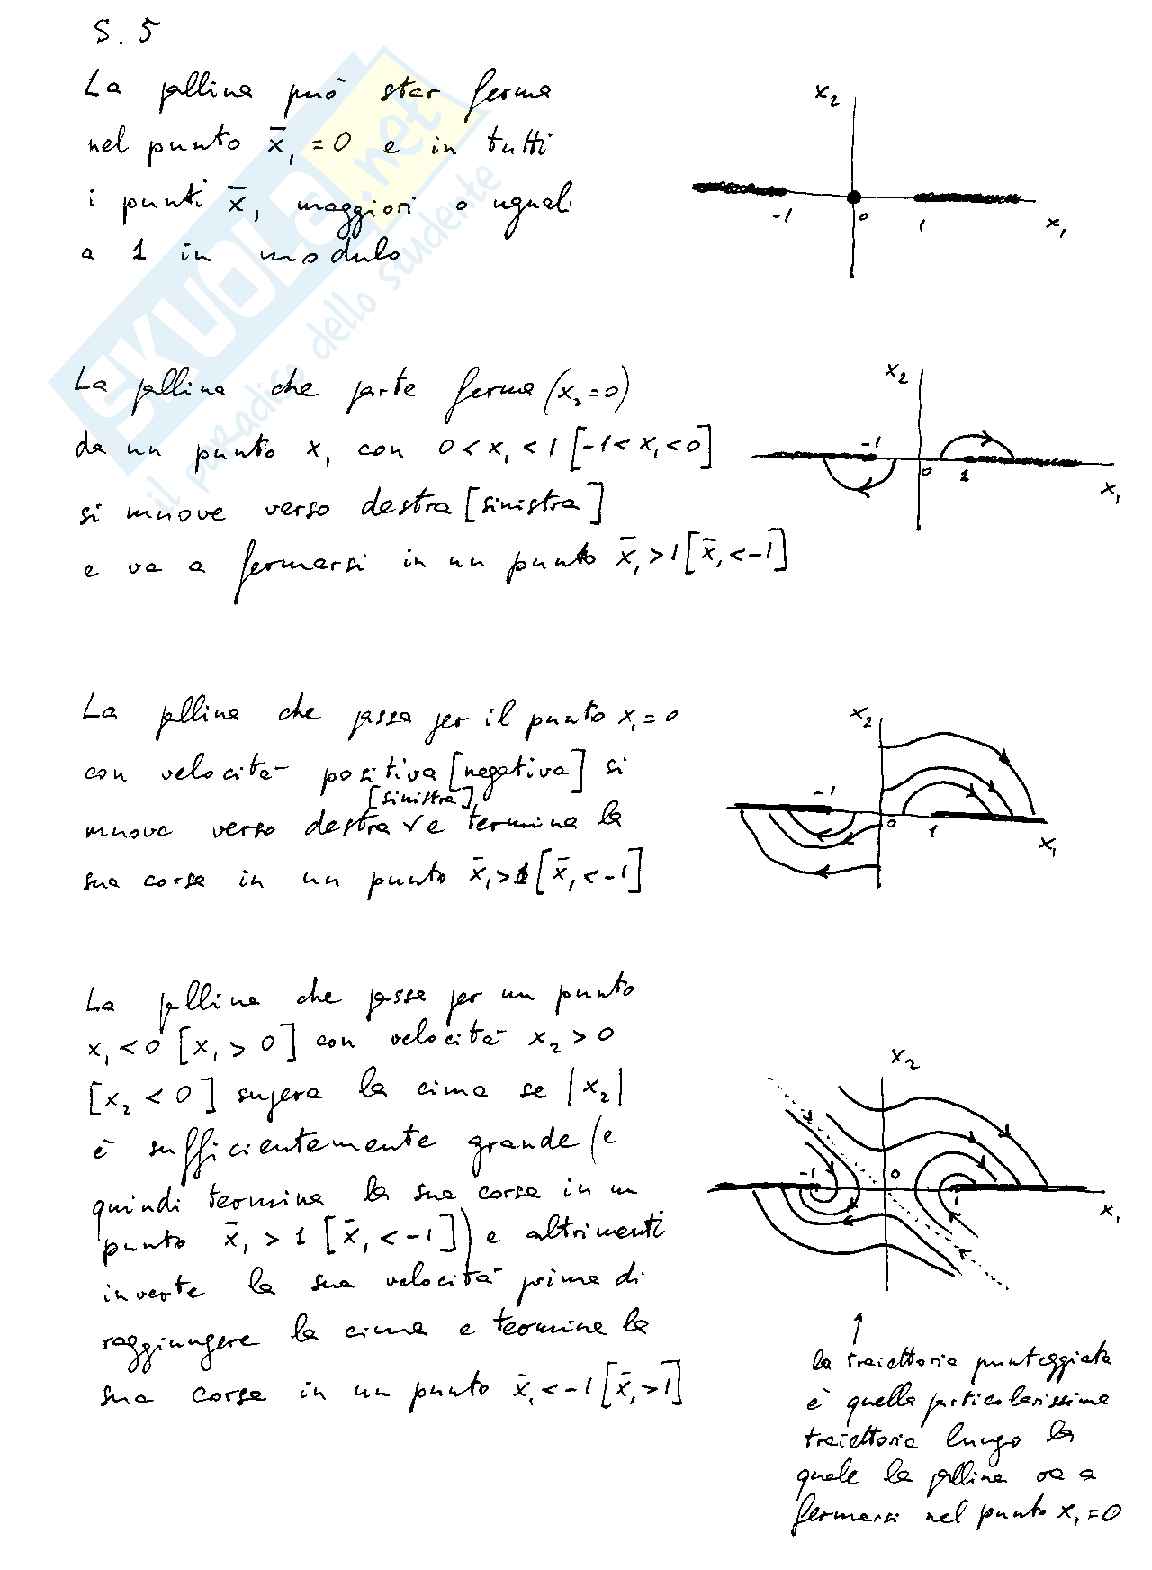 S.5
La pallina può star ferma
nel punto x̄₁ = 0 e in tutti
i punti x̄₁ maggiori o uguali
a 1 in modulo
x₂
-1 0 1 x₁
La pallina che parte ferma (x₂=0)
da un punto x₁ con 0<x₁<1 [-1<x₁<0]
si muove verso destra [sinistra]
e va a fermarsi in un punto x̄₁>1 [x̄₁<-1]
x₂
-1 0 1 x₁
La pallina che passa per il punto x₁=0
con velocità positiva [negativa] si
[sinistra]
muove verso destra e termina la
sua corsa in un punto x̄₁>1 [x̄₁<-1]
x₂
-1 0 1 x₁
La pallina che passa per un punto
x₁<0 [x₁>0] con velocità x₂>0
[x₂<0] supera la cima se |x₂|
è sufficientemente grande (e
quindi termina la sua corsa in un
punto x̄₁>1 [x̄₁<-1]) e altrimenti
inverte la sua velocità prima di
raggiungere la cima e termina la
sua corsa in un punto x̄₁<-1 [x̄₁>1]
x₂
-1 0 1 x₁
la traiettoria punteggiata
è quella particolarissima
traiettoria lungo la
quale la pallina va a
fermarsi nel punto x₁=0
SKUOLA.net
il paradiso dello studente